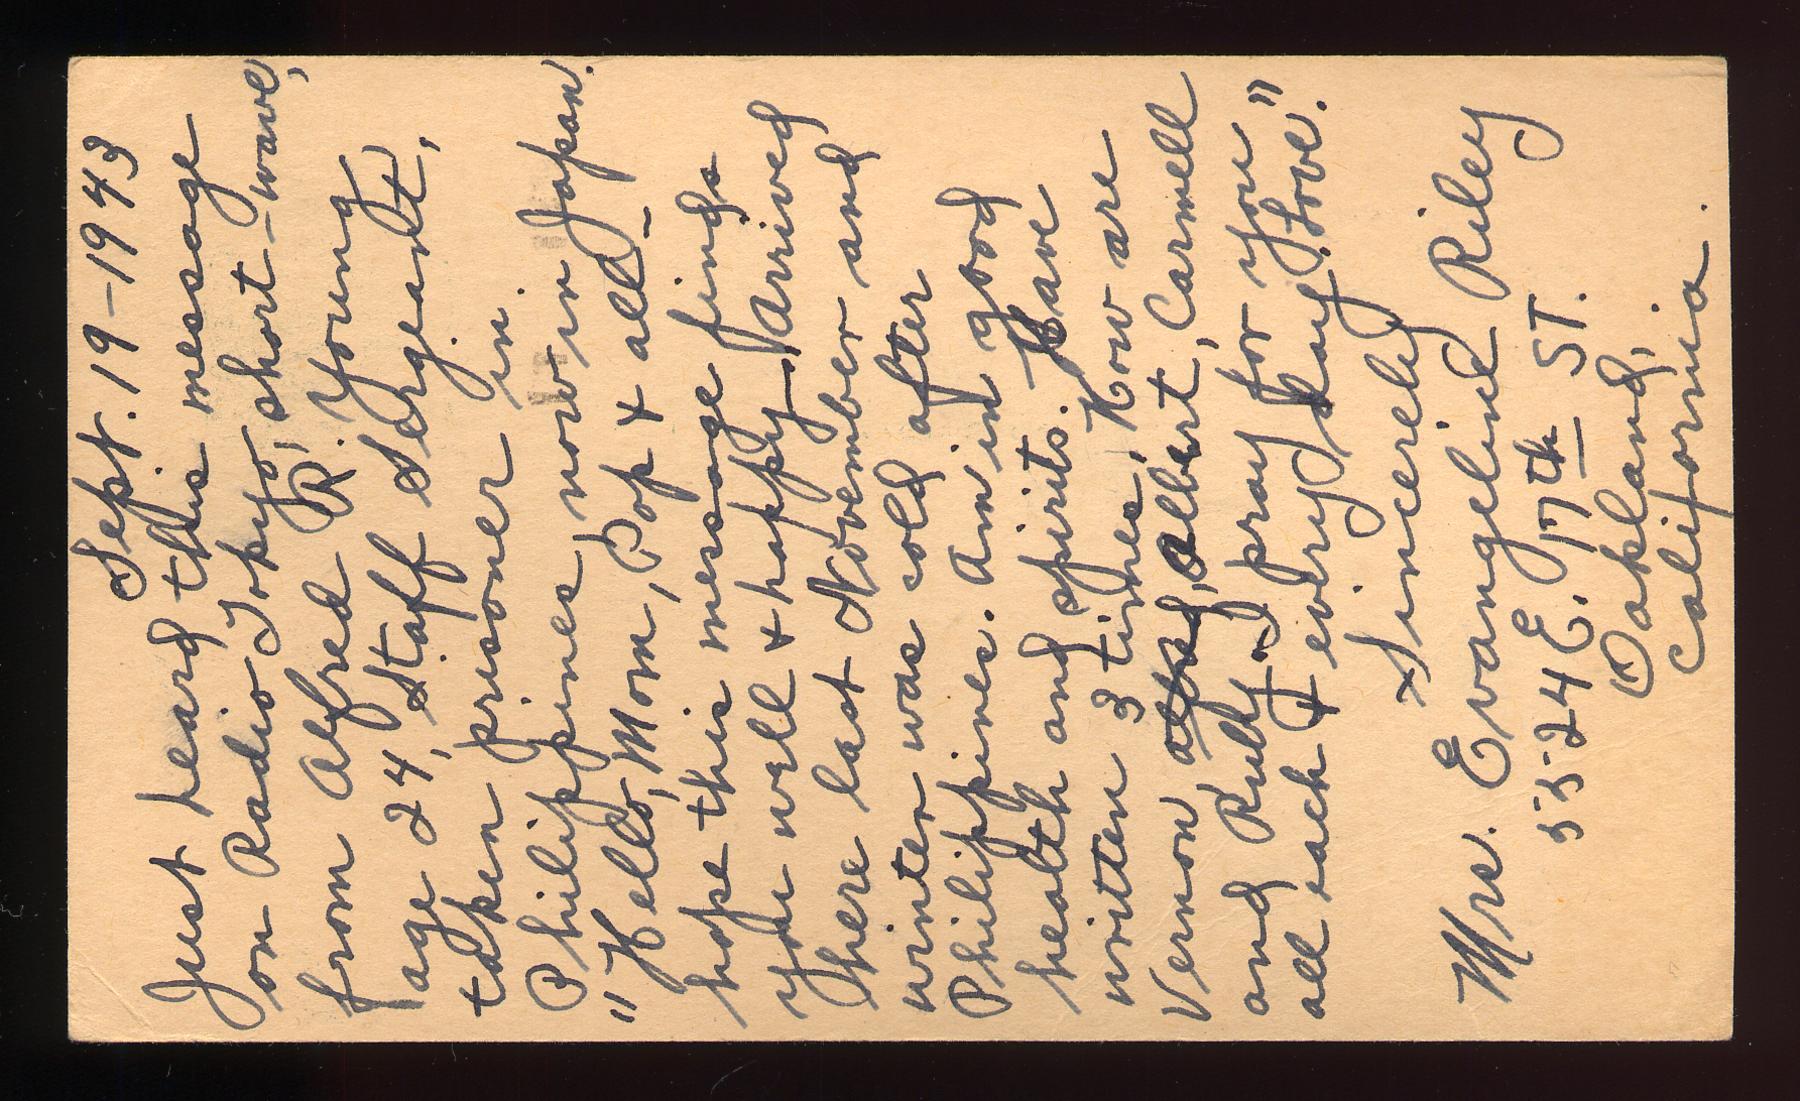 Sept. 19-1943
Just heard this message
on Radio Tokyo, short-wave,
from Alfred R. Young
age 24, Staff Sergeant,
taken prisoner in
Philippines, now in Japan.
"Hello, Mom, Pop & all-
hope this message finds
you well & happy. Arrived
here last November and
winter was cold after
Philippines. Am in good
health and spirits. Have
written 3 times. How are
Vernon, Albert, Carmell
and Rudy. I pray for you
all each & every day. Love."
Sincerely
Mrs. Evangeline Riley
5524 E. 17th ST.
Oakland,
California.